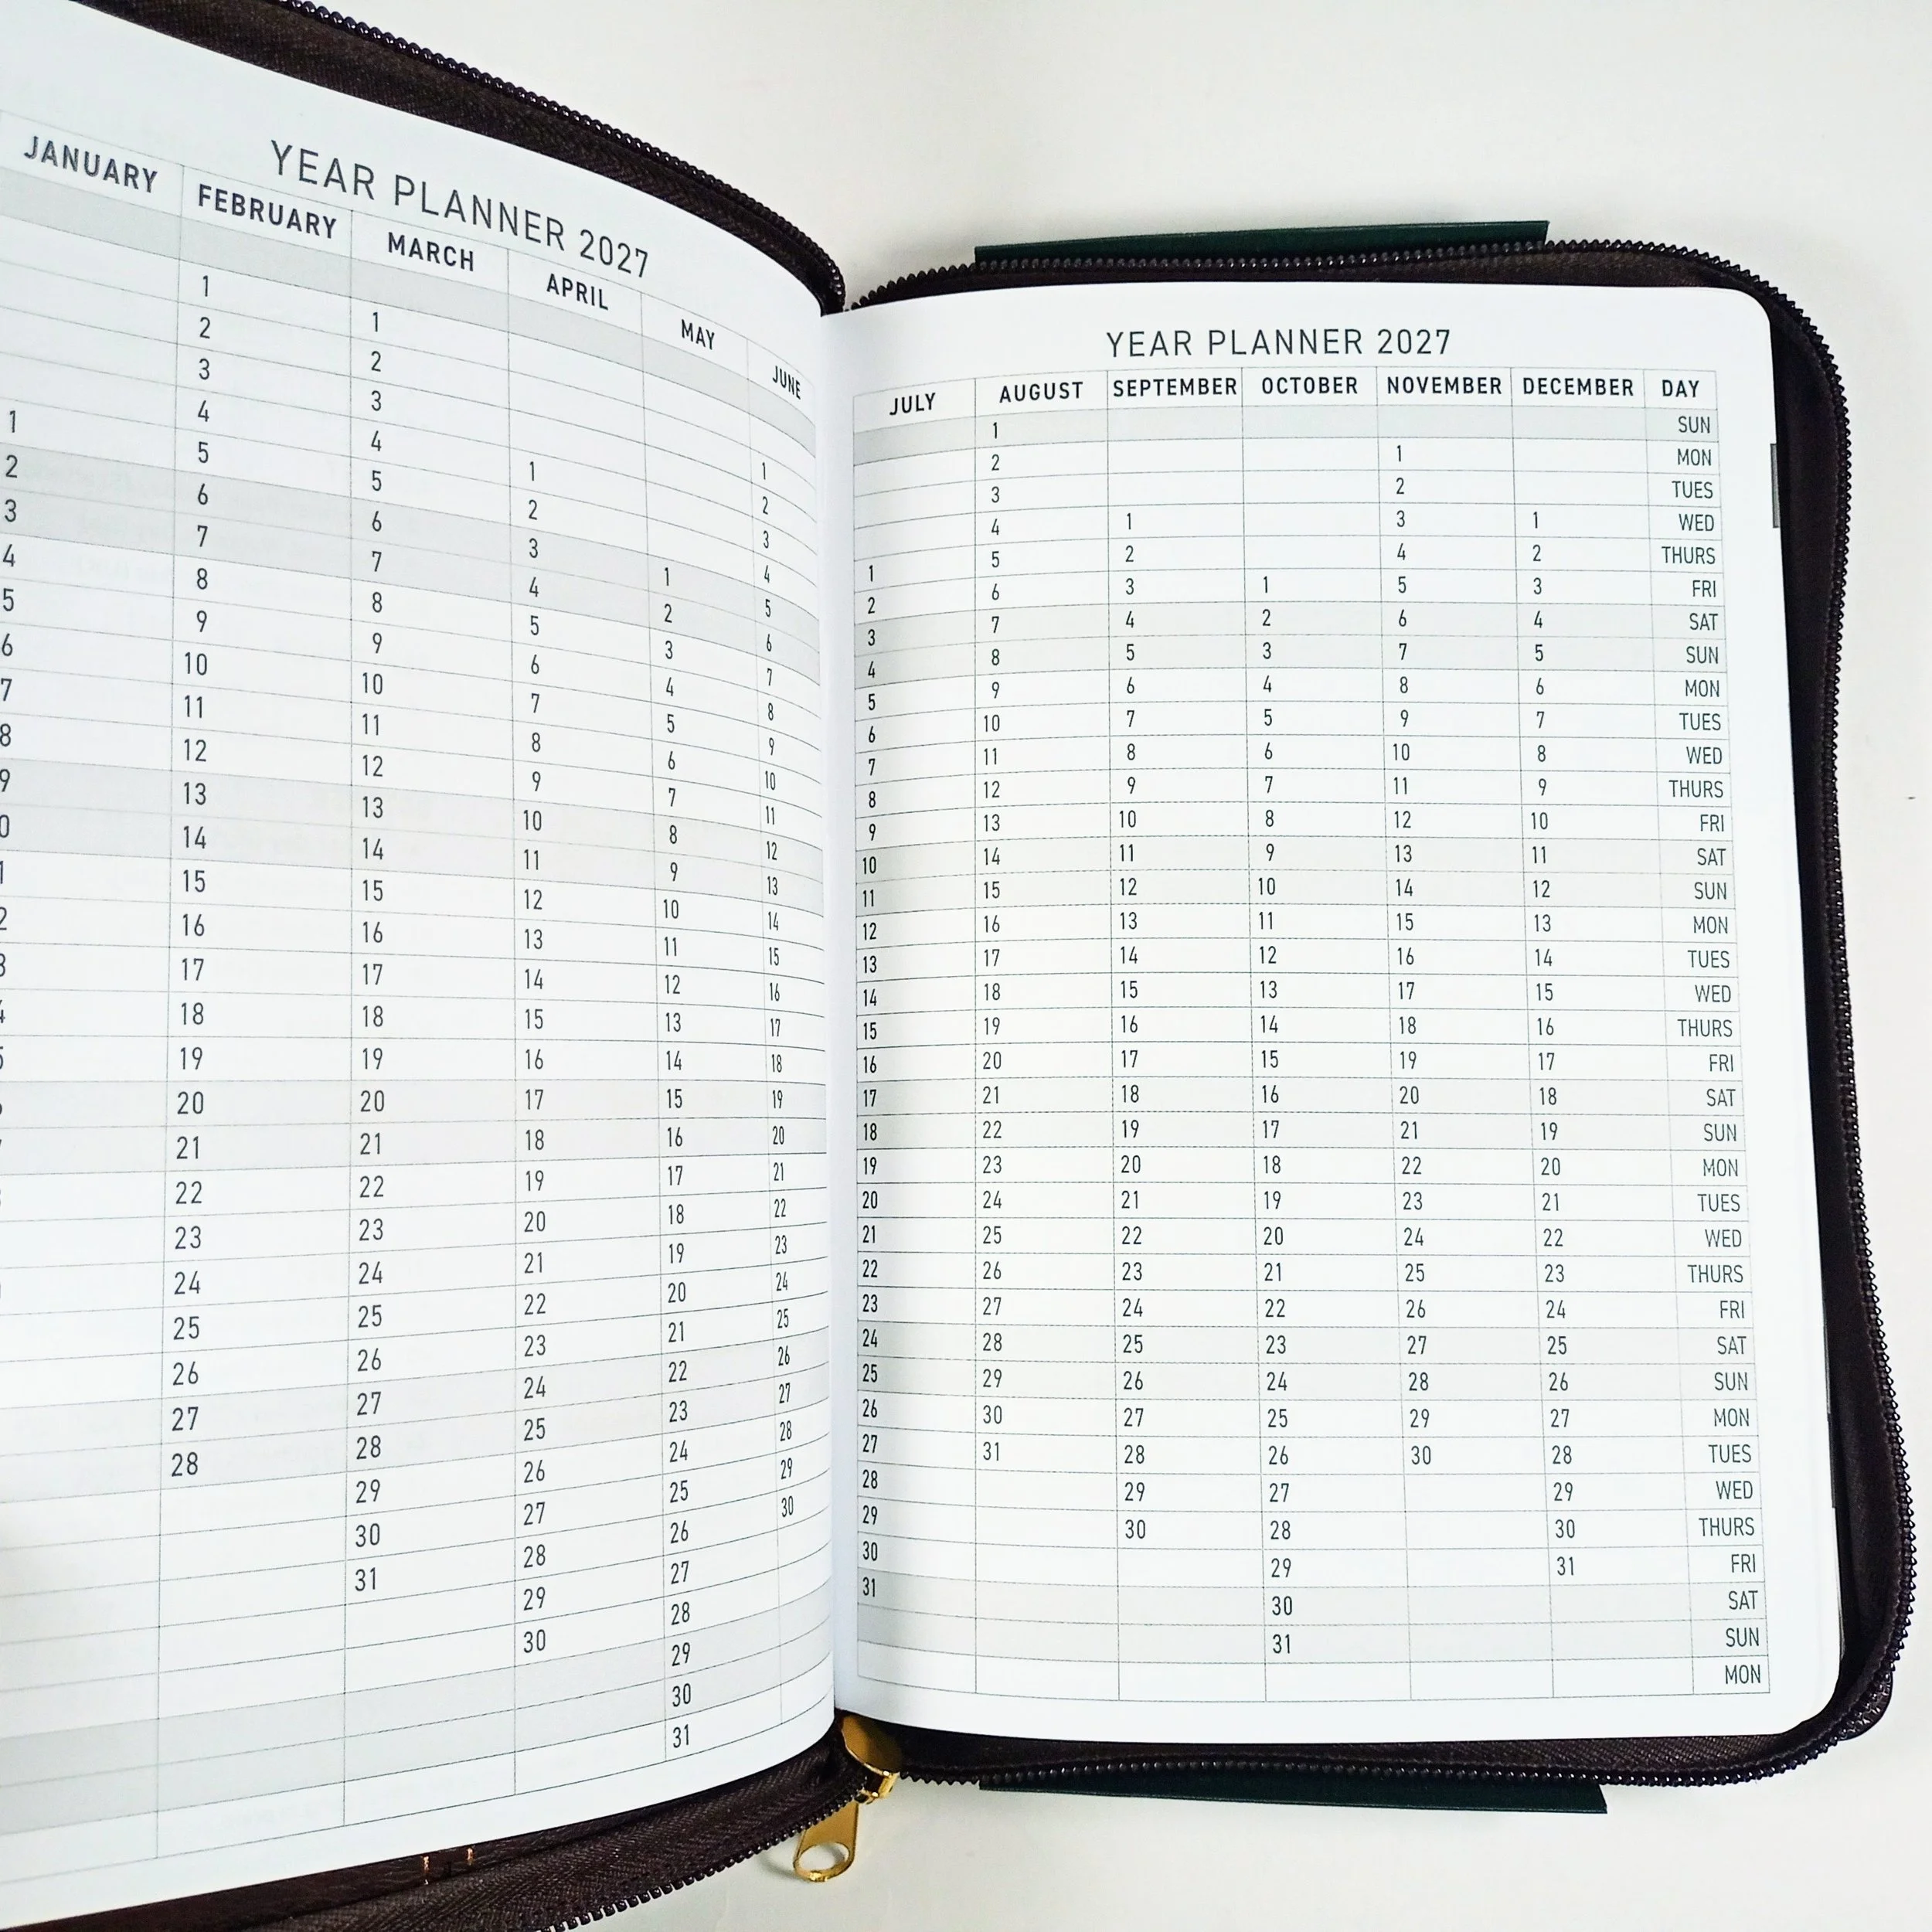 YEAR PLANNER 2027
JANUARY FEBRUARY MARCH APRIL MAY JUNE
1 1
2 2 1
3 3 2
4 4 1 3
1 5 5 2 4
2 6 6 3 1 5
3 7 7 4 2 6
4 8 8 5 3 7
5 9 9 6 4 8
6 10 10 7 5 9
7 11 11 8 6 10
8 12 12 9 7 11
9 13 13 10 8 12
14 14 11 9 13
15 15 12 10 14
16 16 13 11 15
17 17 14 12 16
18 18 15 13 17
19 19 16 14 18
20 20 17 15 19
21 21 18 16 20
22 22 19 17 21
23 23 20 18 22
24 24 21 19 23
25 25 22 20 24
26 26 23 21 25
27 27 24 22 26
28 28 25 23 27
29 26 24 28
30 27 25 29
31 28 26 30
29 27
30 28
29
30
31
YEAR PLANNER 2027
JULY AUGUST SEPTEMBER OCTOBER NOVEMBER DECEMBER DAY
1 SUN
2 1 MON
3 2 TUES
4 1 3 1 WED
1 5 2 4 2 THURS
2 6 3 1 5 3 FRI
3 7 4 2 6 4 SAT
4 8 5 3 7 5 SUN
5 9 6 4 8 6 MON
6 10 7 5 9 7 TUES
7 11 8 6 10 8 WED
8 12 9 7 11 9 THURS
9 13 10 8 12 10 FRI
10 14 11 9 13 11 SAT
11 15 12 10 14 12 SUN
12 16 13 11 15 13 MON
13 17 14 12 16 14 TUES
14 18 15 13 17 15 WED
15 19 16 14 18 16 THURS
16 20 17 15 19 17 FRI
17 21 18 16 20 18 SAT
18 22 19 17 21 19 SUN
19 23 20 18 22 20 MON
20 24 21 19 23 21 TUES
21 25 22 20 24 22 WED
22 26 23 21 25 23 THURS
23 27 24 22 26 24 FRI
24 28 25 23 27 25 SAT
25 29 26 24 28 26 SUN
26 30 27 25 29 27 MON
27 31 28 26 30 28 TUES
28 29 27 29 WED
29 30 28 30 THURS
30 29 31 FRI
31 30 SAT
31 SUN
MON